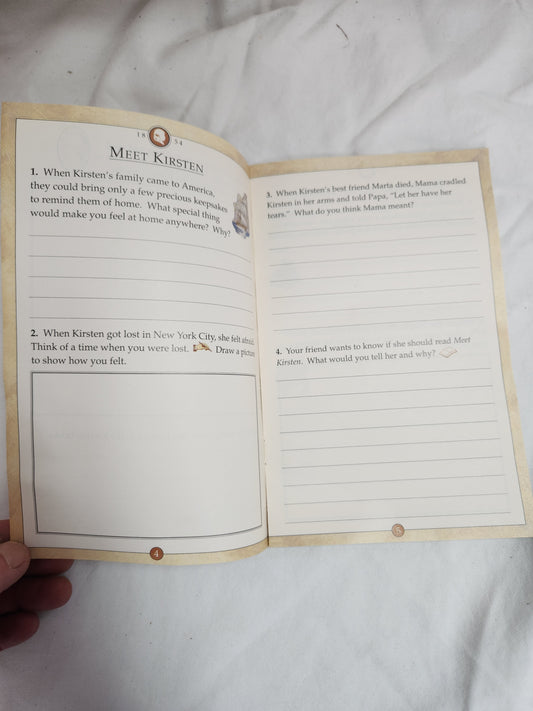 18 54
MEET KIRSTEN
1. When Kirsten's family came to America,
they could bring only a few precious keepsakes
to remind them of home. What special thing
would make you feel at home anywhere? Why?
2. When Kirsten got lost in New York City, she felt afraid.
Think of a time when you were lost. Draw a picture
to show how you felt.
4
3. When Kirsten's best friend Marta died, Mama cradled
Kirsten in her arms and told Papa, "Let her have her
tears." What do you think Mama meant?
4. Your friend wants to know if she should read Meet
Kirsten. What would you tell her and why?
5